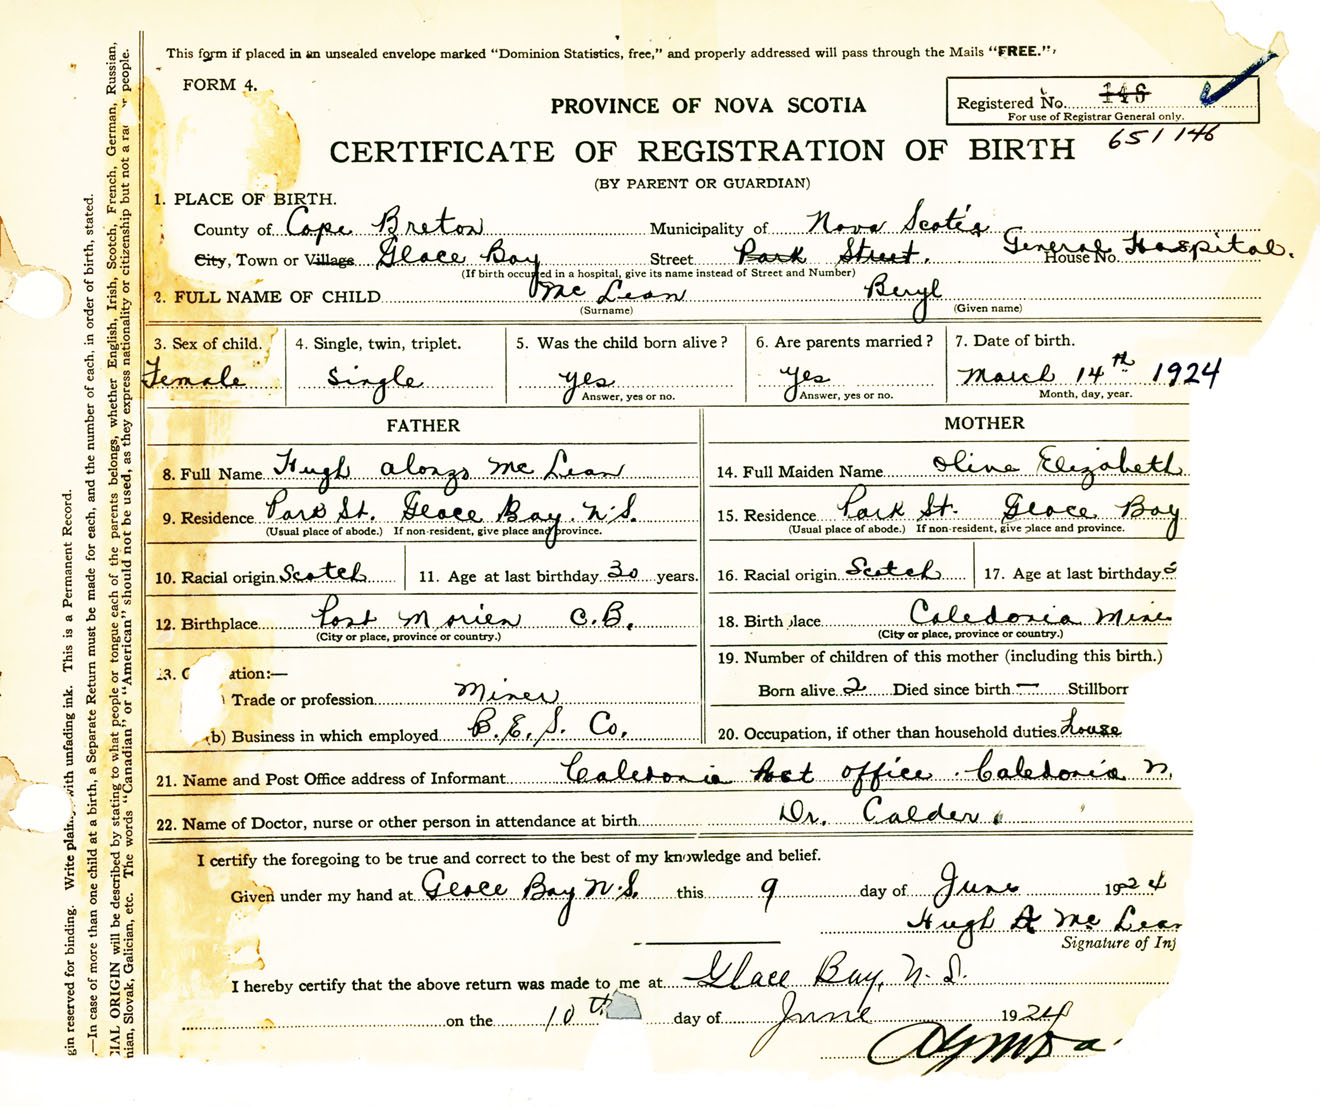 This form if placed in an unsealed envelope marked "Dominion Statistics, free," and properly addressed will pass through the Mails "FREE."
FORM 4.
PROVINCE OF NOVA SCOTIA
Registered No. 146
For use of Registrar General only.
651146
CERTIFICATE OF REGISTRATION OF BIRTH
(BY PARENT OR GUARDIAN)
1. PLACE OF BIRTH.
County of Cape Breton Municipality of Nova Scotia
City, Town or Village Glace Bay Street Park Street. House No. General Hospital.
(If birth occurred in a hospital, give its name instead of Street and Number)
2. FULL NAME OF CHILD Mc Lean Beryl
(Surname) (Given name)
3. Sex of child. 4. Single, twin, triplet. 5. Was the child born alive? 6. Are parents married? 7. Date of birth.
Female Single yes yes March 14th 1924
Answer, yes or no. Answer, yes or no. Month, day, year.
FATHER MOTHER
8. Full Name Hugh Alonzo Mc Lean 14. Full Maiden Name Olive Elizabeth
9. Residence Park St. Glace Bay. N.S. 15. Residence Park St. Glace Bay
(Usual place of abode.) If non-resident, give place and province. (Usual place of abode.) If non-resident, give place and province.
10. Racial origin Scotch 11. Age at last birthday 30 years. 16. Racial origin Scotch 17. Age at last birthday
12. Birthplace Port Morien C.B. 18. Birth place Caledonia Mine
(City or place, province or country.) (City or place, province or country.)
19. Number of children of this mother (including this birth.)
13. ation:—
Trade or profession Miner Born alive 2 Died since birth — Stillbor
(b) Business in which employed B.E.S. Co. 20. Occupation, if other than household duties house
21. Name and Post Office address of Informant Caledonia Post office. Caledonia N.
22. Name of Doctor, nurse or other person in attendance at birth Dr. Calder.
I certify the foregoing to be true and correct to the best of my knowledge and belief.
Given under my hand at Glace Bay N.S. this 9 day of June 1924
Hugh A Mc Lean
Signature of Inf
I hereby certify that the above return was made to me at Glace Bay, N.S.
on the 10th day of June 1924
gin reserved for binding. Write plain with unfading ink. This is a Permanent Record.
.—In case of more than one child at a birth, a Separate Return must be made for each, and the number of each, in order of birth, stated.
IAL ORIGIN will be described by stating to what people or tongue each of the parents belongs, whether English, Irish, Scotch, French, German, Russian,
nian, Slovak, Galician, etc. The words "Canadian" or "American" should not be used, as they express nationality or citizenship but not a ra r people.